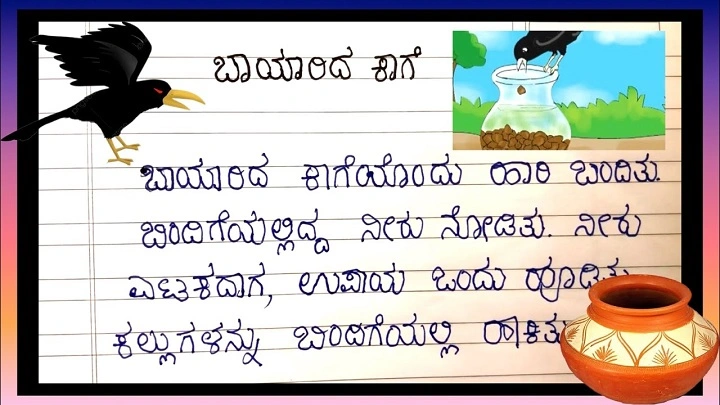 ಬಾಯಾರಿದ ಕಾಗೆ
ಬಾಯಾರಿದ ಕಾಗೆಯೊಂದು ಹಾರಿ ಬಂದಿತು.
ಬಿಂದಿಗೆಯಲ್ಲಿದ್ದ ನೀರು ನೋಡಿತು. ನೀರು
ಎಟಕದಾಗ, ಉಪಾಯ ಒಂದು ಹೂಡಿತು
ಕಲ್ಲುಗಳನ್ನು ಬಿಂದಿಗೆಯಲ್ಲಿ ಹಾಕಿತು